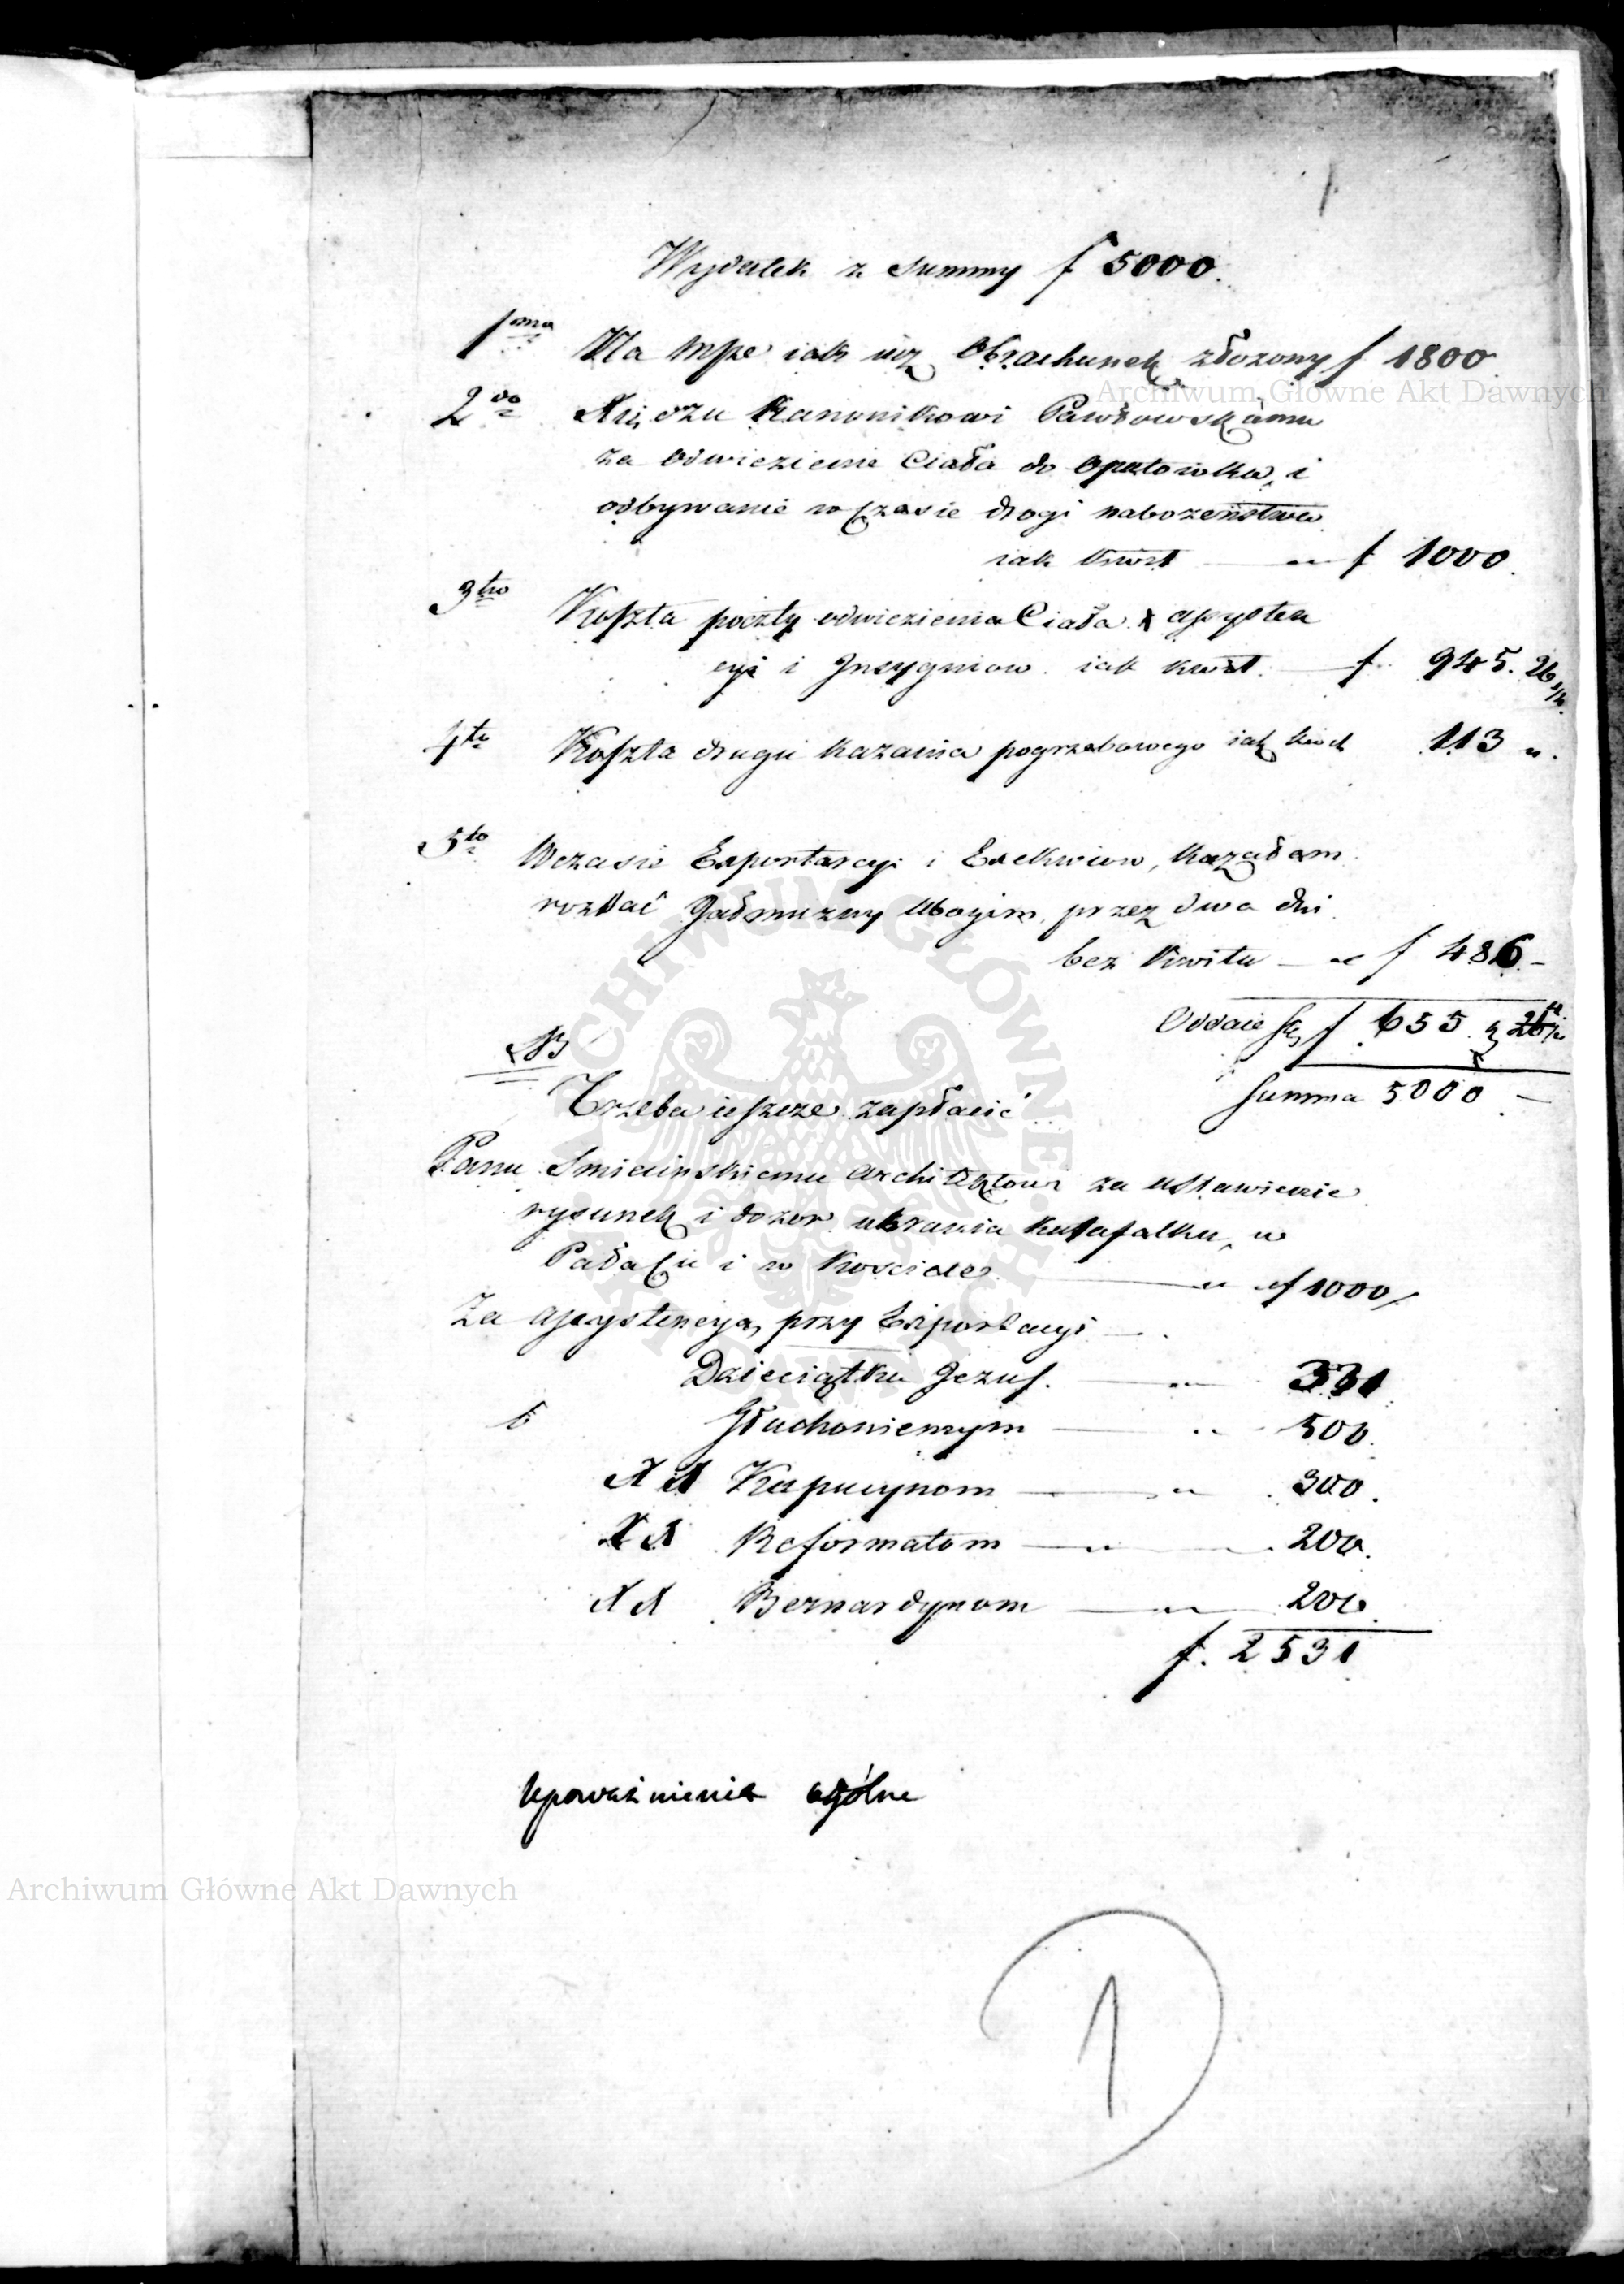 Wydatek z Summy f 5000.
1mo Na Msze iak iuz Obrachunek złozony f 1800
Archiwum Główne Akt Dawnych
2do Xiędzu Kanonikowi Pawłowskiemu
za odwiezienie Ciała do Opatowka, i
odbywanie w Czasie drogi nabozeństwa
iak kwit f 1000.
3tio Koszta poczty odwiezienia Ciała assysten
cyi i Insygniow iak kwit f 945. 26
4to Koszta drugu Kazania pogrzebowego iak kwit 113 „.
5to Wczasie Exportacyi i Exekwiow, kazałam
rozdać Jałmuzny Ubogim, przez dwa dni
bez kwitu f 486 –
Oddaie Się f 655
NB
Summa 5000 –
Trzeba ieszcze zapłacić
Panu architektowi za ustawienie
rysunek i dozor ubrania katafalku, w
Pałacu i w Kosciele f 1000
Za assystencyą, przy Exportacyi
Dzieciątku Jezus. 331
Głuchoniemym 500.
X X Kapucynom 300.
X X Reformatom 200.
X X Bernardynom 200.
f. 2531
Upoważnienie ogólne
Archiwum Główne Akt Dawnych
1
ARCHIWUM GŁÓWNE AKT DAWNYCH